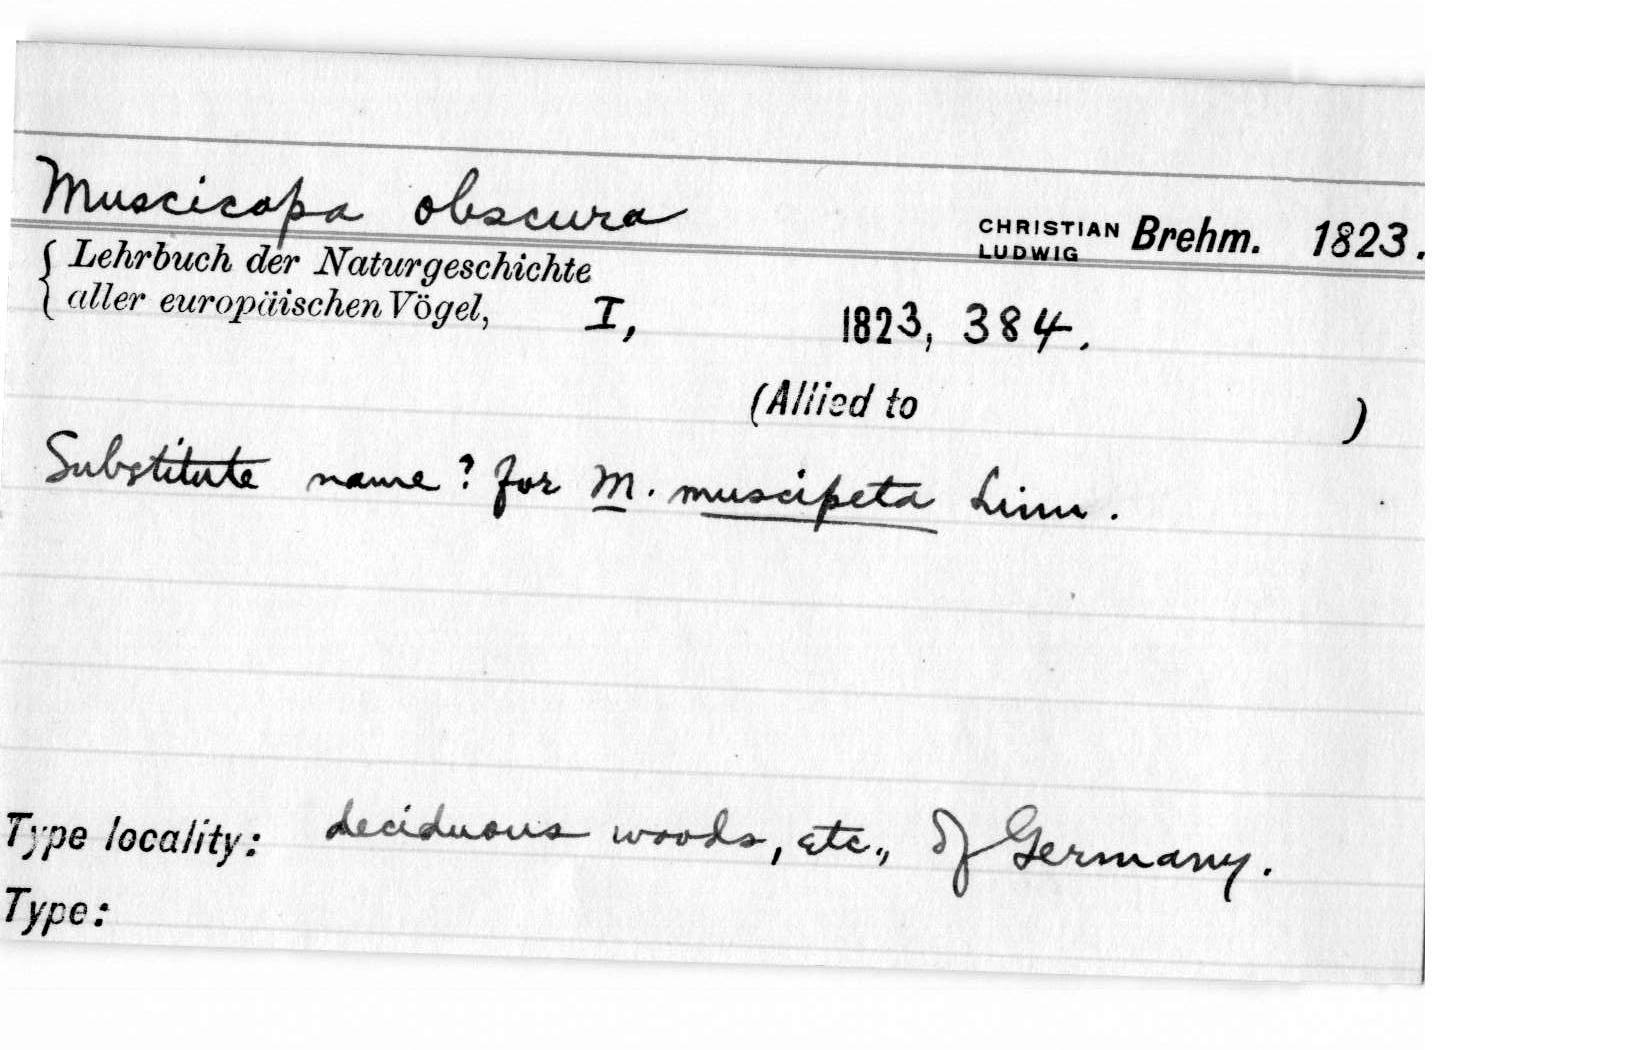 Muscicapa obscura
CHRISTIAN LUDWIG Brehm. 1823.
{ Lehrbuch der Naturgeschichte
aller europäischen Vögel, I, 1823, 384.
(Allied to )
Substitute name? for M. muscipeta Linn.
Type locality: deciduous woods, etc., of Germany.
Type: